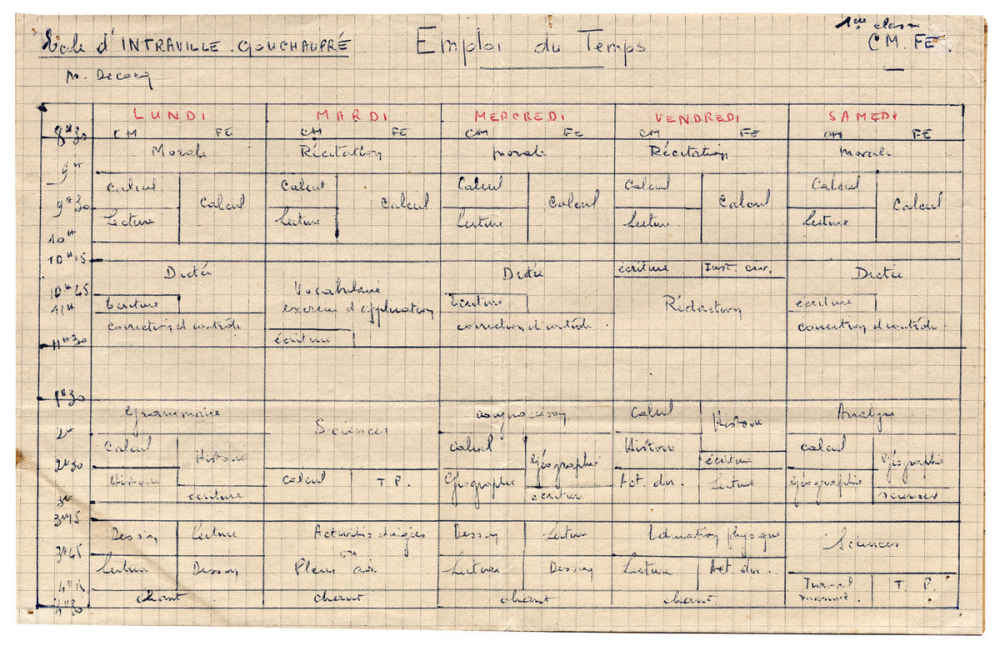 École d'INTRAVILLE-GOUCHAUPRÉ
Emploi du Temps
1ère classe
CM.FE.
M. Decocq
LUNDI MARDI MERCREDI VENDREDI SAMEDI
8H30 CM FE CM FE CM FE CM FE CM FE
Morale Récitation morale Récitation morale
9H
Calcul Calcul Calcul Calcul Calcul
Calcul Calcul Calcul Calcul Calcul
9H30
Lecture Lecture Lecture Lecture Lecture
10H
10H15
écriture Inst. civ.
Dictée Dictée Dictée
Vocabulaire
10H45
Ecriture exercice d'application Ecriture Rédaction écriture
11H
correction et contrôle correction et contrôle. correction et contrôle.
écriture
11H30
1H30
Grammaire conjugaison Calcul Histoire Analyse
Sciences
2H
Calcul Histoire calcul Géographie Histoire écriture calcul Géographie
2H30
Histoire écriture calcul T.P. Géographie écriture Act. dir. Lecture géographie sciences
3H
3H15
Dessin Lecture Activités dirigées Dessin Lecture Education physique Sciences
ou
3H45
Lecture Dessin Plein air. Lecture Dessin Lecture Act. dir.
4H15
Travail manuel. T.P.
chant chant chant chant
4H30